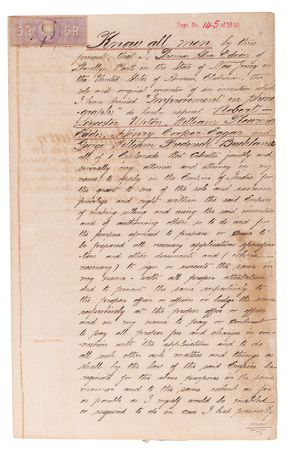 Regr. No. 145 of 1890
5R 5R
Know all men by these
presents that I, Thomas Alva Edison
Park in the State of New Jersey in
the United States of America, Electrician, the
sole and original inventor of an invention which
I have termed "Improvement in phono-
graphs" do hereby appoint Robert
William
Henry Cooper Eggar and
George William Frederick
all of 1 Esplanade Row Calcutta jointly and
severally my attorney and attorneys in my
name to apply in the Empire of India for
the grant to me of the sole and exclusive
privilege and right within the said Empire
of making selling and using the said invention
and of authorizing others so to do and for
the purpose aforesaid to prepare or cause to
be prepared all necessary applications
and other documents and (where
necessary) to sign or execute the same in
my name with all proper attestations
and to present the same respectively to
the proper officer or officers or lodge the same
respectively at the proper office or offices
and in my name to pay or contract
to pay all proper fees and charges in con-
nection with the applications and to do
all such other acts matters and things as
shall by the law of the said Empire be
requisite for the above purposes in the same
manner and to the same extent as far
as possible as I myself would be enabled
or required to do in case I had personally